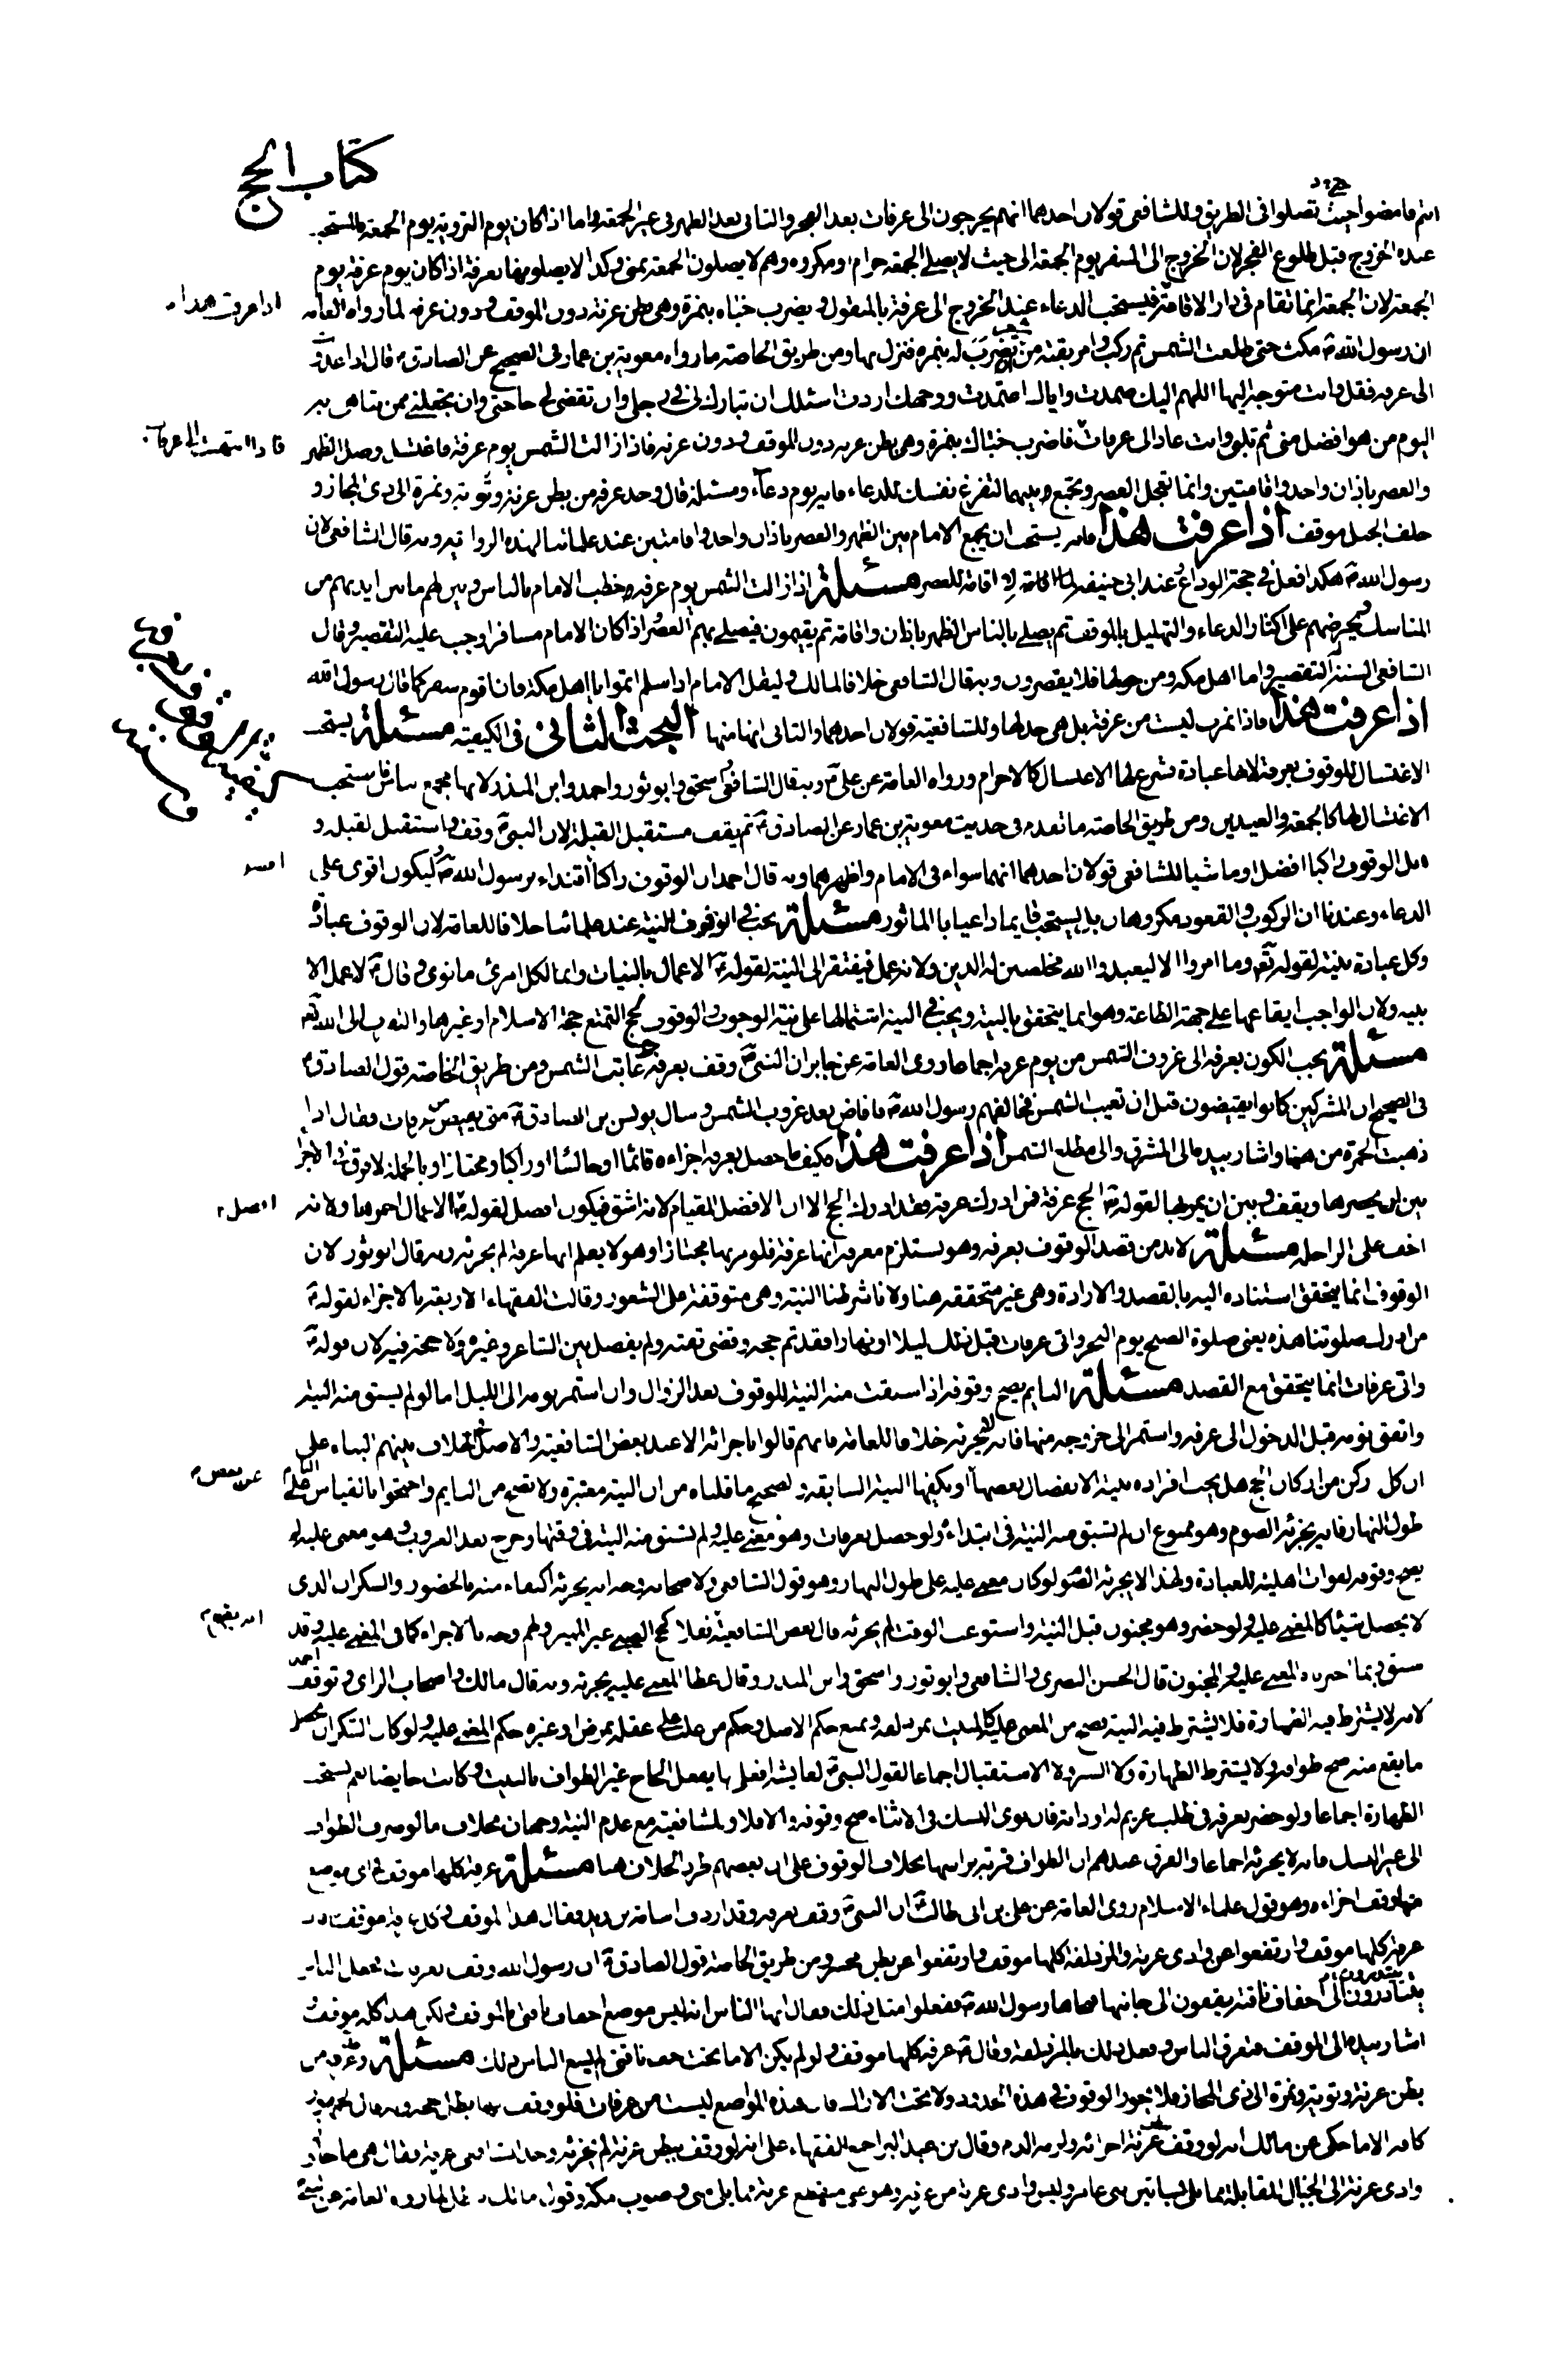 كتاب الحج
انتم فامضوا حيث تصلوا فى الطريق وللشافعى قولان احدهما انهم يخرجون الى عرفات بعد الفجر والثانى بعد الظهر فى غير الجمعة واما اذا كان يوم التروية يوم الجمعة فالمستحب
عنده الخروج قبل طلوع الفجر لان الخروج الى السفر يوم الجمعة الى حيث لا يصلى الجمعة حرام او مكروه وهم لا يصلون الجمعة بمنى وكذا لا يصلونها بعرفة اذا كان يوم عرفة يوم
الجمعة لان الجمعة انما تقام فى دار الاقامة فيستحب الدعاء عند الخروج الى عرفة بالمنقول ويضرب خباه بنمرة وهى بطن عرنة دون الموقف ودون عرفة لما رواه العامة
ان رسول الله ص مكث حتى طلعت الشمس ثم ركب وامر بقبة من شعر تضرب له بنمرة فنزل بها ومن طريق الخاصة ما رواه معوية بن عمار فى الصحيح عن الصادق ع قال اذا غدوت
الى عرفة فقل وانت متوجه اليها اللهم اليك صمدت واياك اعتمدت ووجهك اردت اسئلك ان تبارك لى فى رحلى وان تقضى لى حاجتى وان تجعلنى ممن تباهى به
اليوم من هو افضل منى ثم تلبى وانت غاد الى عرفات فاضرب خباك بنمرة وهى بطن عرنة دون الموقف ودون عرفة فاذا زالت الشمس يوم عرفة فاغتسل وصل الظهر
والعصر باذان واحد واقامتين وانما تعجل العصر وتجمع بينهما لتفرغ نفسك للدعاء فانه يوم دعاء ومسئلة قال وحد عرفة من بطن عرنة وثوية ونمرة الى ذى المجاز و
خلف الجبل موقف اذا عرفت هذا فانه يستحب ان يجمع الامام بين الظهر والعصر باذان واحد واقامتين عند علمائنا لهذه الرواية وبه قال الشافعى لان
رسول الله ص هكذا فعل فى حجة الوداع وعند ابى حنيفة اقامة للعصر مسئلة اذا زالت الشمس يوم عرفة خطب الامام بالناس وبين لهم ما بين ايديهم من
المناسك ويحرضهم على اكثار الدعاء والتهليل بالموقف ثم يصلى بالناس الظهر باذان واقامة ثم يقيمون فيصلى بهم العصر اذا كان الامام مسافرا وجب عليه التقصير وقال
الشافعى السنة التقصير واما اهل مكة ومن حولها فلا يقصرون وبه قال الشافعى خلافا لمالك وليقل الامام اذا سلم اتموا يا اهل مكة فانا قوم سفر كما قال رسول الله
اذا عرفت هذا فاذا نمرة ليست من عرفة بل هى حدلها وللشافعية قولان احدهما والثانى انها منها البحث الثانى فى الكيفية مسئلة يستحب
الاغتسال للوقوف بعرفة لانها عبادة فشرع لها الاغتسال كالاحرام ورواه العامة عن على ع وبه قال الشافعى واسحق وابو ثور واحمد وابن المنذر لانها مجمع الناس فاستحب
الاغتسال لها كالجمعة والعيدين ومن طريق الخاصة ما تقدم فى حديث معوية بن عمار عن الصادق ع ثم يقف مستقبل القبلة لان النبى ص وقف واستقبل القبلة و
هل الوقوف راكبا افضل او ماشيا للشافعى قولان احدهما انهما سواء فى الامام واظهرهما وبه قال احمد ان الوقوف راكبا اقتداء برسول الله ص وليكون اقوى على
الدعاء وعندنا ان الركوب والقعود مكروهان بل يستحب قايما داعيا بالماثور مسئلة يجب فى الوقوف النية عند علمائنا خلافا للعامة لان الوقوف عبادة
وكل عبادة بنية لقوله تع وما امروا الا ليعبدوا الله مخلصين له الدين ولانه عمل فيفتقر الى النية لقوله ص الاعمال بالنيات وانما لكل امرئ ما نوى وقال ع لا عمل الا
بنية ولان الواجب ايقاعها على جهة الطاعة وهو انما يتحقق بالنية ويجب فى النية اشتمالها على نية الوجوب والوقوف لحج التمتع حجة الاسلام او غيرها والتقرب الى الله تع
مسئلة يجب الكون بعرفة الى غروب الشمس من يوم عرفة اجماعا روى العامة عن جابر ان النبى ص وقف بعرفة حتى غابت الشمس ومن طريق الخاصة قول الصادق ع
فى الصحيح ان المشركين كانوا يفيضون قبل ان تغيب الشمس فخالفهم رسول الله ص فافاض بعد غروب الشمس وسال يونس بن الصادق ع متى نفيض من عرفات فقال اذا
ذهبت الحمرة من هنا واشار بيده الى المشرق والى مطلع الشمس اذا عرفت هذا فكيف ما حصل بعرفة اجزاءه قائما او جالسا او راكبا او مجتازا وبالجملة لا فرق فى الاجزاء
بين ان يحصرها ويقف وبين ان يمر بها لقوله ص الحج عرفة فمن ادرك عرفة فقد ادرك الحج الا ان الافضل القيام لانه اشق فيكون افضل لقوله ع افضل الاعمال احمزها ولانه
اخف على الراحلة مسئلة لا بد من قصد الوقوف بعرفة وهو يستلزم معرفة انها عرفة فلو مر بها مجتازا وهو لا يعلم انها عرفة لم يجزئه وبه قال ابو ثور لان
الوقوف انما يتحقق استناده اليه بالقصد والارادة وهى غير متحققة هنا ولانا شرطنا النية وهى متوقفة على الشعور وقالت الفقهاء الاربعة بالاجزاء لقوله ص
من ادرك صلوتنا هذه يعنى صلوة الصبح يوم النحر واتى عرفات قبل ذلك ليلا او نهارا فقد تم حجه وقضى تفثه ولم يفصل بين الشاعر وغيره ولا حجة فيه لان قوله ع
واتى عرفات انما يتحقق مع القصد مسئلة النايم يصح وقوفه اذا سبقت منه النية للوقوف بعد الزوال وان استمر نومه الى الليل اما لو لم يسبق منه النية
واتفق نومه قبل الدخول الى عرفة واستمر الى خروجه منها فانه لا يجزئه خلافا للعامة فانهم قالوا باجزائه الا عند بعض الشافعية والاصل فى الخلاف بينهم البناء على
ان كل ركن من اركان الحج هل يجب افراده بنية لانفصال بعضها او يكفيها النية السابقة والصحيح ما قلناه من ان النية معتبرة ولا تصح من النايم واحتجوا بالقياس على النائم
طول النهار فانه يجزئه الصوم وهو ممنوع ان لم تسبق منه النية فى ابتداءه ولو حصل بعرفات وهو مغمى عليه ولم تسبق منه النية فى وقتها وخرج بعد الغروب وهو مغمى عليه لم
يصح وقوفه لفوات اهليته للعبادة ولهذا لا يجزئه الصوم لو كان مغمى عليه طول النهار وهو قول الشافعى ولاصحابه وجه انه يجزئه اكتفاء منه بالحضور والسكران الذى
لا يحصل شيئا كالمغمى عليه ولو حضر وهو مجنون قبل النية واستوعب الوقت لم يجزئه قال بعض الشافعية يقع نفلا كحج الصبى غير المميز ولهم وجه بالاجزاء كما فى المغمى عليه وقد
عليه والمجنون قال الحسن البصرى والشافعى وابو ثور واسحق وابن المنذر وقال عطا المغمى عليه يجزئه وبه قال مالك واصحاب الراى وتوقف احمد
لانه لا يشترط فيه الطهارة فلا يشترط فيه النية فصح من المغمى عليه كالمبيت بمزدلفة ونمنع حكم الاصل وحكم من غلب على عقله بمرض او غيره حكم المغمى عليه ولو كان السكران يحصل
ما يقع منه صح طوافه ولا يشترط الطهارة ولا السترة ولا الاستقبال اجماعا لقول النبى ص لعايشة افعلى ما يفعل الحاج غير الطواف بالبيت وكانت حايضا نعم يستحب
الطهارة اجماعا ولو حضر بعرفة فى طلب غريم له او دابة فان نوى النسك فى الاثناء صح وقوفه والا فلا وللشافعية مع عدم النية وجهان بخلاف ما لو صرف الطواف
الى غير النسك فانه لا يجزئه اجماعا والفرق عندهم ان الطواف قربة براسها بخلاف الوقوف على ان بعضهم طرد الخلاف هنا مسئلة عرفة كلها موقف فى اى موضع
منها وقف اجزاءه وهو قول علماء الاسلام روى العامة عن على بن ابى طالب ع ان النبى ص وقف بعرفة وقد اردف اسامة بن زيد وقال هذا الموقف وكل عرفة موقف وقال
عرفة كلها موقف وارتفعوا عن وادى عرنة والمزدلفة كلها موقف وارتفعوا عن بطن محسر ومن طريق الخاصة قول الصادق ع ان رسول الله وقف بعرفات فجعل الناس
يبتدرون الى اخفاف ناقته يقفون الى جانبها فنحاها رسول الله ص ففعلوا مثل ذلك فقال ايها الناس انه ليس موضع اخفاف ناقتى بالموقف ولكن هذا كله موقف و
اشار بيده الى الموقف فتفرق الناس وفعل ذلك بالمزدلفة وقال ع عرفة كلها موقف ولو لم يكن الا ما تحت خف ناقتى لم يسع الناس ذلك مسئلة وعرفة من
بطن عرنة وثوية ونمرة الى ذى المجاز فلا يجوز الوقوف فى هذه الحدود ولا تحت الاراك فان هذه المواضع ليست من عرفات فلو وقف بها بطل حجه وبه قال الجمهور
كافة الا ما حكى عن مالك انه لو وقف ببطن عرنة اجزائه ولزمه الدم وقال بن عبد البر اجمع الفقهاء على انه لو وقف ببطن عرنة لم يجزئه وحد الشافعى عرفة فقال هى ما جاوز
وادى عرنة الى الجبال المقابلة مما يلى بساتين بنى عامر وليس وادى عرنة من عرفة وهو على منقطع عرفة مما يلى منى وصوب مكة وقول مالك لما رواه العامة عن النبى
اذا عرفت هذا
فاذا انتهيت الى عرفات
افضل
عن بعض